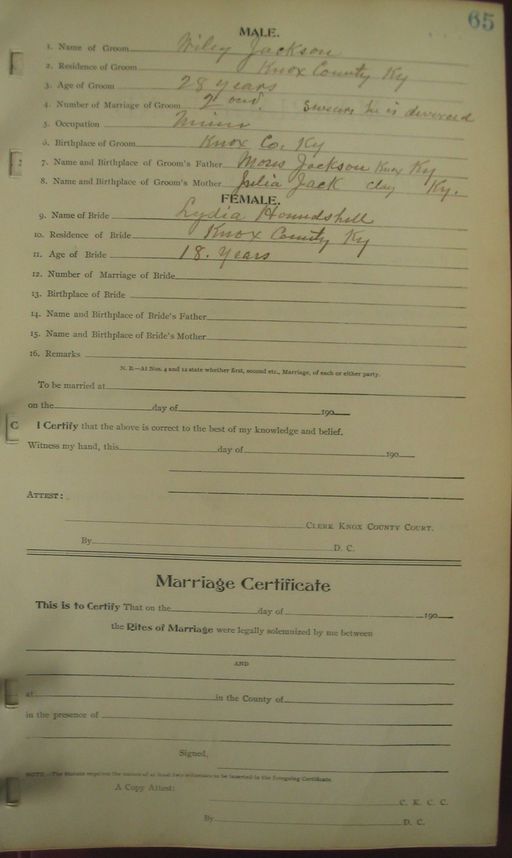 65
MALE.
1. Name of Groom Wiley Jackson
2. Residence of Groom Knox County Ky
3. Age of Groom 28 years
4. Number of Marriage of Groom 2 swears he is divorced
5. Occupation Miner
6. Birthplace of Groom Knox Co. Ky
7. Name and Birthplace of Groom's Father Jackson Knox Ky
8. Name and Birthplace of Groom's Mother Julia Jack Clay Ky.
FEMALE.
9. Name of Bride Lydia Houndshell
10. Residence of Bride Knox County Ky
11. Age of Bride 18. years
12. Number of Marriage of Bride
13. Birthplace of Bride
14. Name and Birthplace of Bride's Father
15. Name and Birthplace of Bride's Mother
16. Remarks
N. B.—At Nos. 4 and 12 state whether first, second etc., Marriage, of each or either party.
To be married at
on the day of 190
C I Certify that the above is correct to the best of my knowledge and belief.
Witness my hand, this day of 190
ATTEST:
CLERK KNOX COUNTY COURT.
By D. C.
Marriage Certificate
This is to Certify That on the day of 190
the Rites of Marriage were legally solemnized by me between
AND
at in the County of
in the presence of
Signed,
NOTE.—The statute requires the names of at least two witnesses to be inserted in the foregoing Certificate.
A Copy Attest:
C. K. C. C.
By D. C.